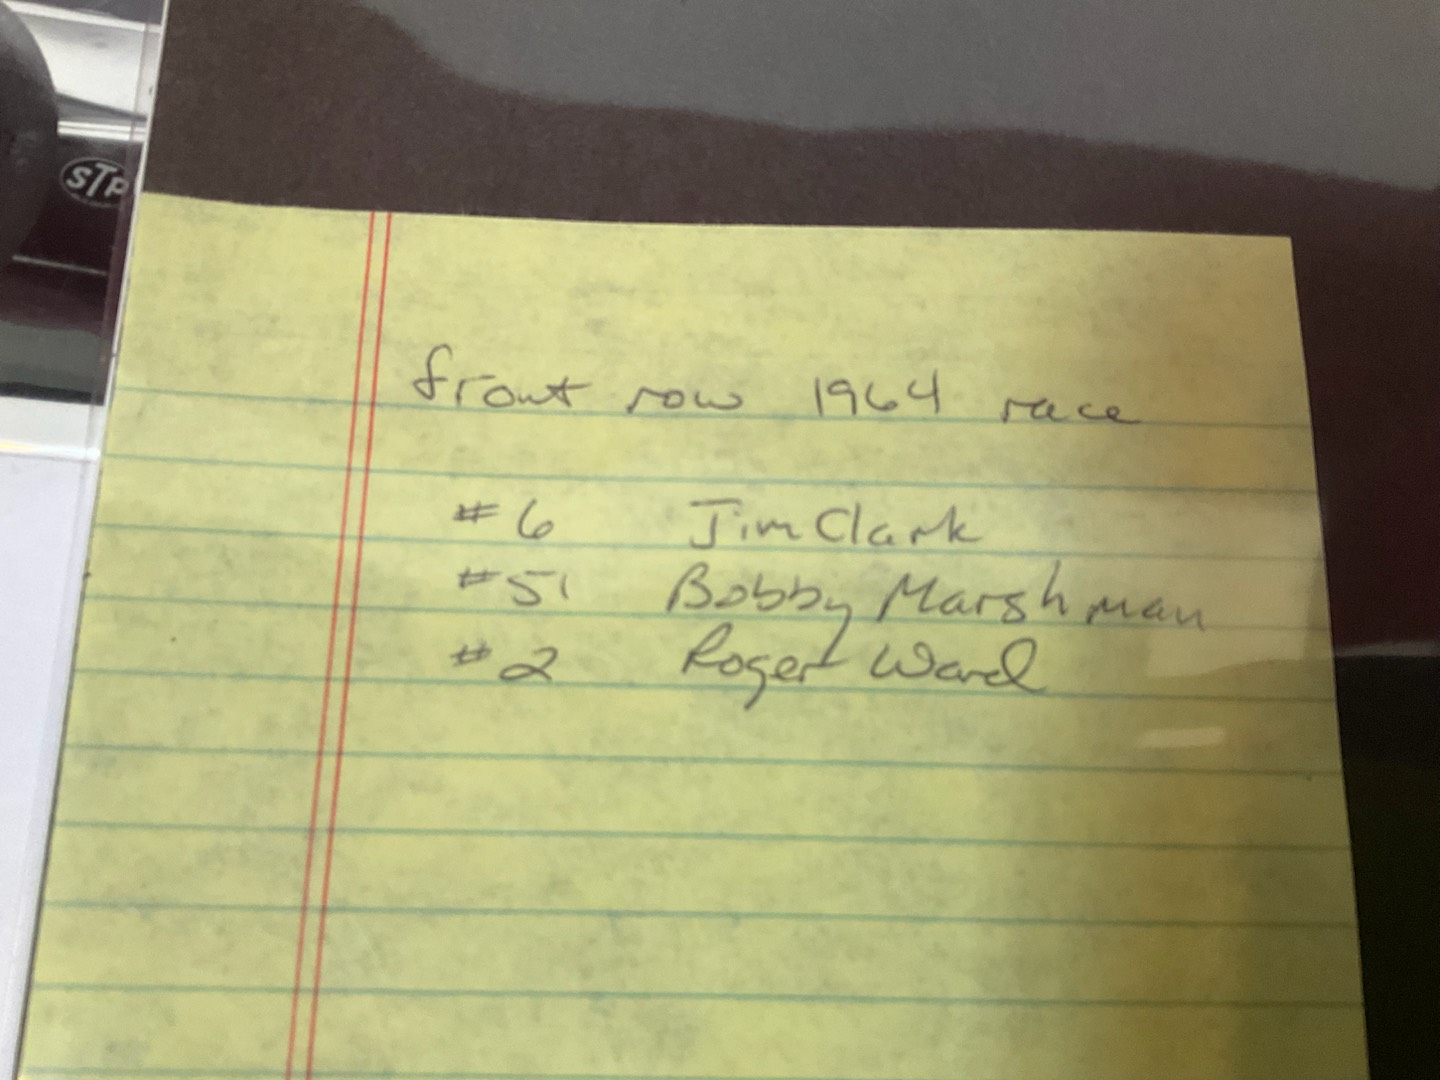 STP
front row 1964 race
#6 Jim Clark
#51 Bobby Marshman
#2 Roger Ward